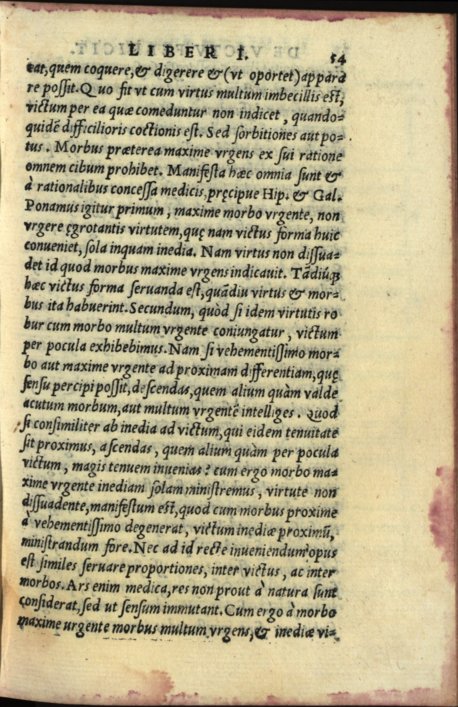 LIBER I. 54
eat,quem coquere,& digerere &(vt oportet)appara
re poſſit. Quo fit vt cum virtus multum imbecillis eſt,
victum per ea quæ comeduntur non indicet, quando-
quidē difficilioris coctionis eſt. Sed ſorbitiones aut po-
tus. Morbus præterea maxime vrgens ex ſui ratione
omnem cibum prohibet. Manifeſta hæc omnia ſunt &
à rationalibus conceſſa medicis, pręcipue Hip. & Gal.
Ponamus igitur primum, maxime morbo vrgente, non
vrgere ęgrotantis virtutem, quę nam victus forma huic
conueniet, ſola inquam inedia. Nam virtus non diſſua-
det id quod morbus maxime vrgens indicauit. Tādiuq;
hæc victus forma ſeruanda eſt, quādiu virtus & mor-
bus ita habuerint. Secundum, quòd ſi idem virtutis ro
bur cum morbo multum vrgente coniungatur, victum
per pocula exhibebimus. Nam ſi vehementiſſimo mor-
bo aut maxime vrgente ad proximam differentiam, quę
ſenſu percipi poſſit, deſcendas, quem alium quàm valde
acutum morbum, aut multum vrgentē intelliges. Quod
ſi conſimiliter ab inedia ad victum, qui eidem tenuitate
ſit proximus, aſcendas, quem alium quàm per pocula
victum, magis tenuem inuenias? cum ergo morbo ma-
xime vrgente inediam ſolam miniſtremus, virtute non
diſſuadente, manifeſtum eſt, quod cum morbus proxime
à vehementiſſimo degenerat, victum inediæ proximū,
miniſtrandum fore. Nec ad id recte inueniendum opus
eſt ſimiles ſeruare proportiones, inter victus, ac inter
morbos. Ars enim medica, res non prout à natura ſunt
conſiderat, ſed ut ſenſum immutant. Cum ergo à morbo
maxime urgente morbus multum vrgens, & inediæ vi-